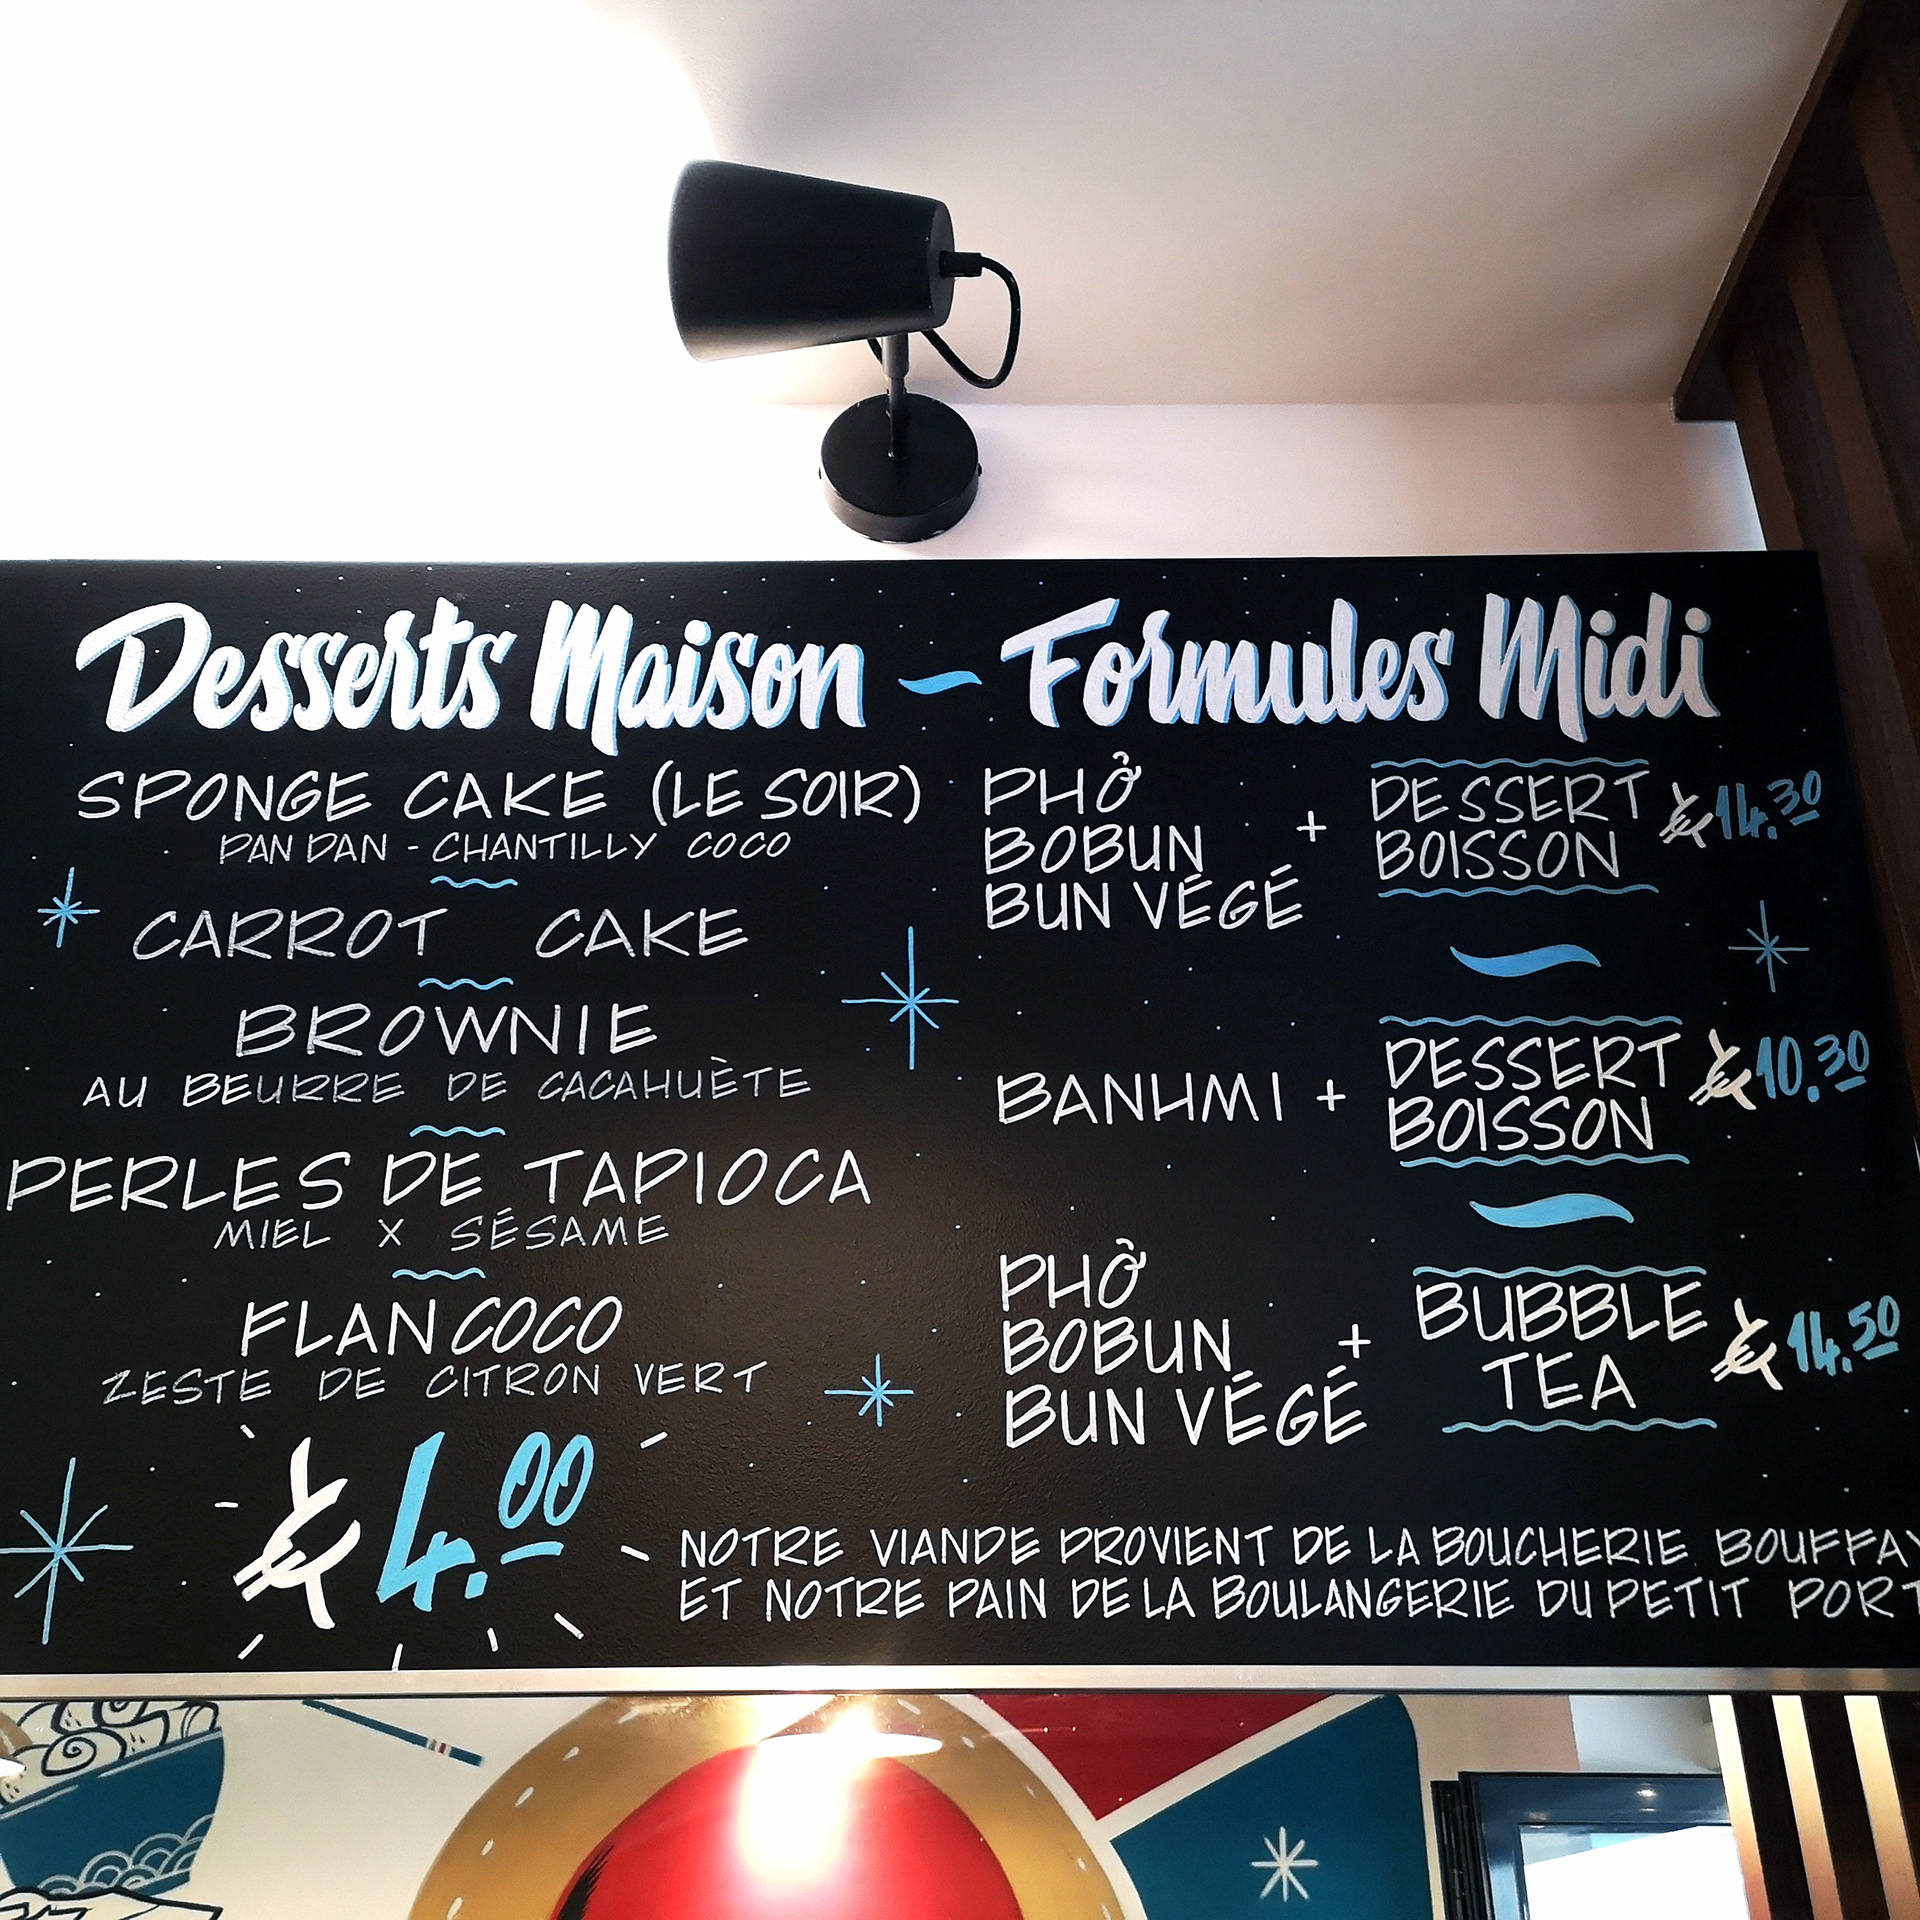 Desserts Maison – Formules Midi
SPONGE CAKE (LE SOIR)
PANDAN - CHANTILLY COCO
CARROT CAKE
BROWNIE
AU BEURRE DE CACAHUÈTE
PERLES DE TAPIOCA
MIEL X SÉSAME
FLAN COCO
ZESTE DE CITRON VERT
4.00
PHỞ
BOBUN
BUN VÉGÉ
+
DESSERT
BOISSON
14.30
BANHMI +
DESSERT
BOISSON
10.30
PHỞ
BOBUN
BUN VÉGÉ
+
BUBBLE
TEA
14.50
NOTRE VIANDE PROVIENT DE LA BOUCHERIE BOUFFAY
ET NOTRE PAIN DE LA BOULANGERIE DU PETIT PORT